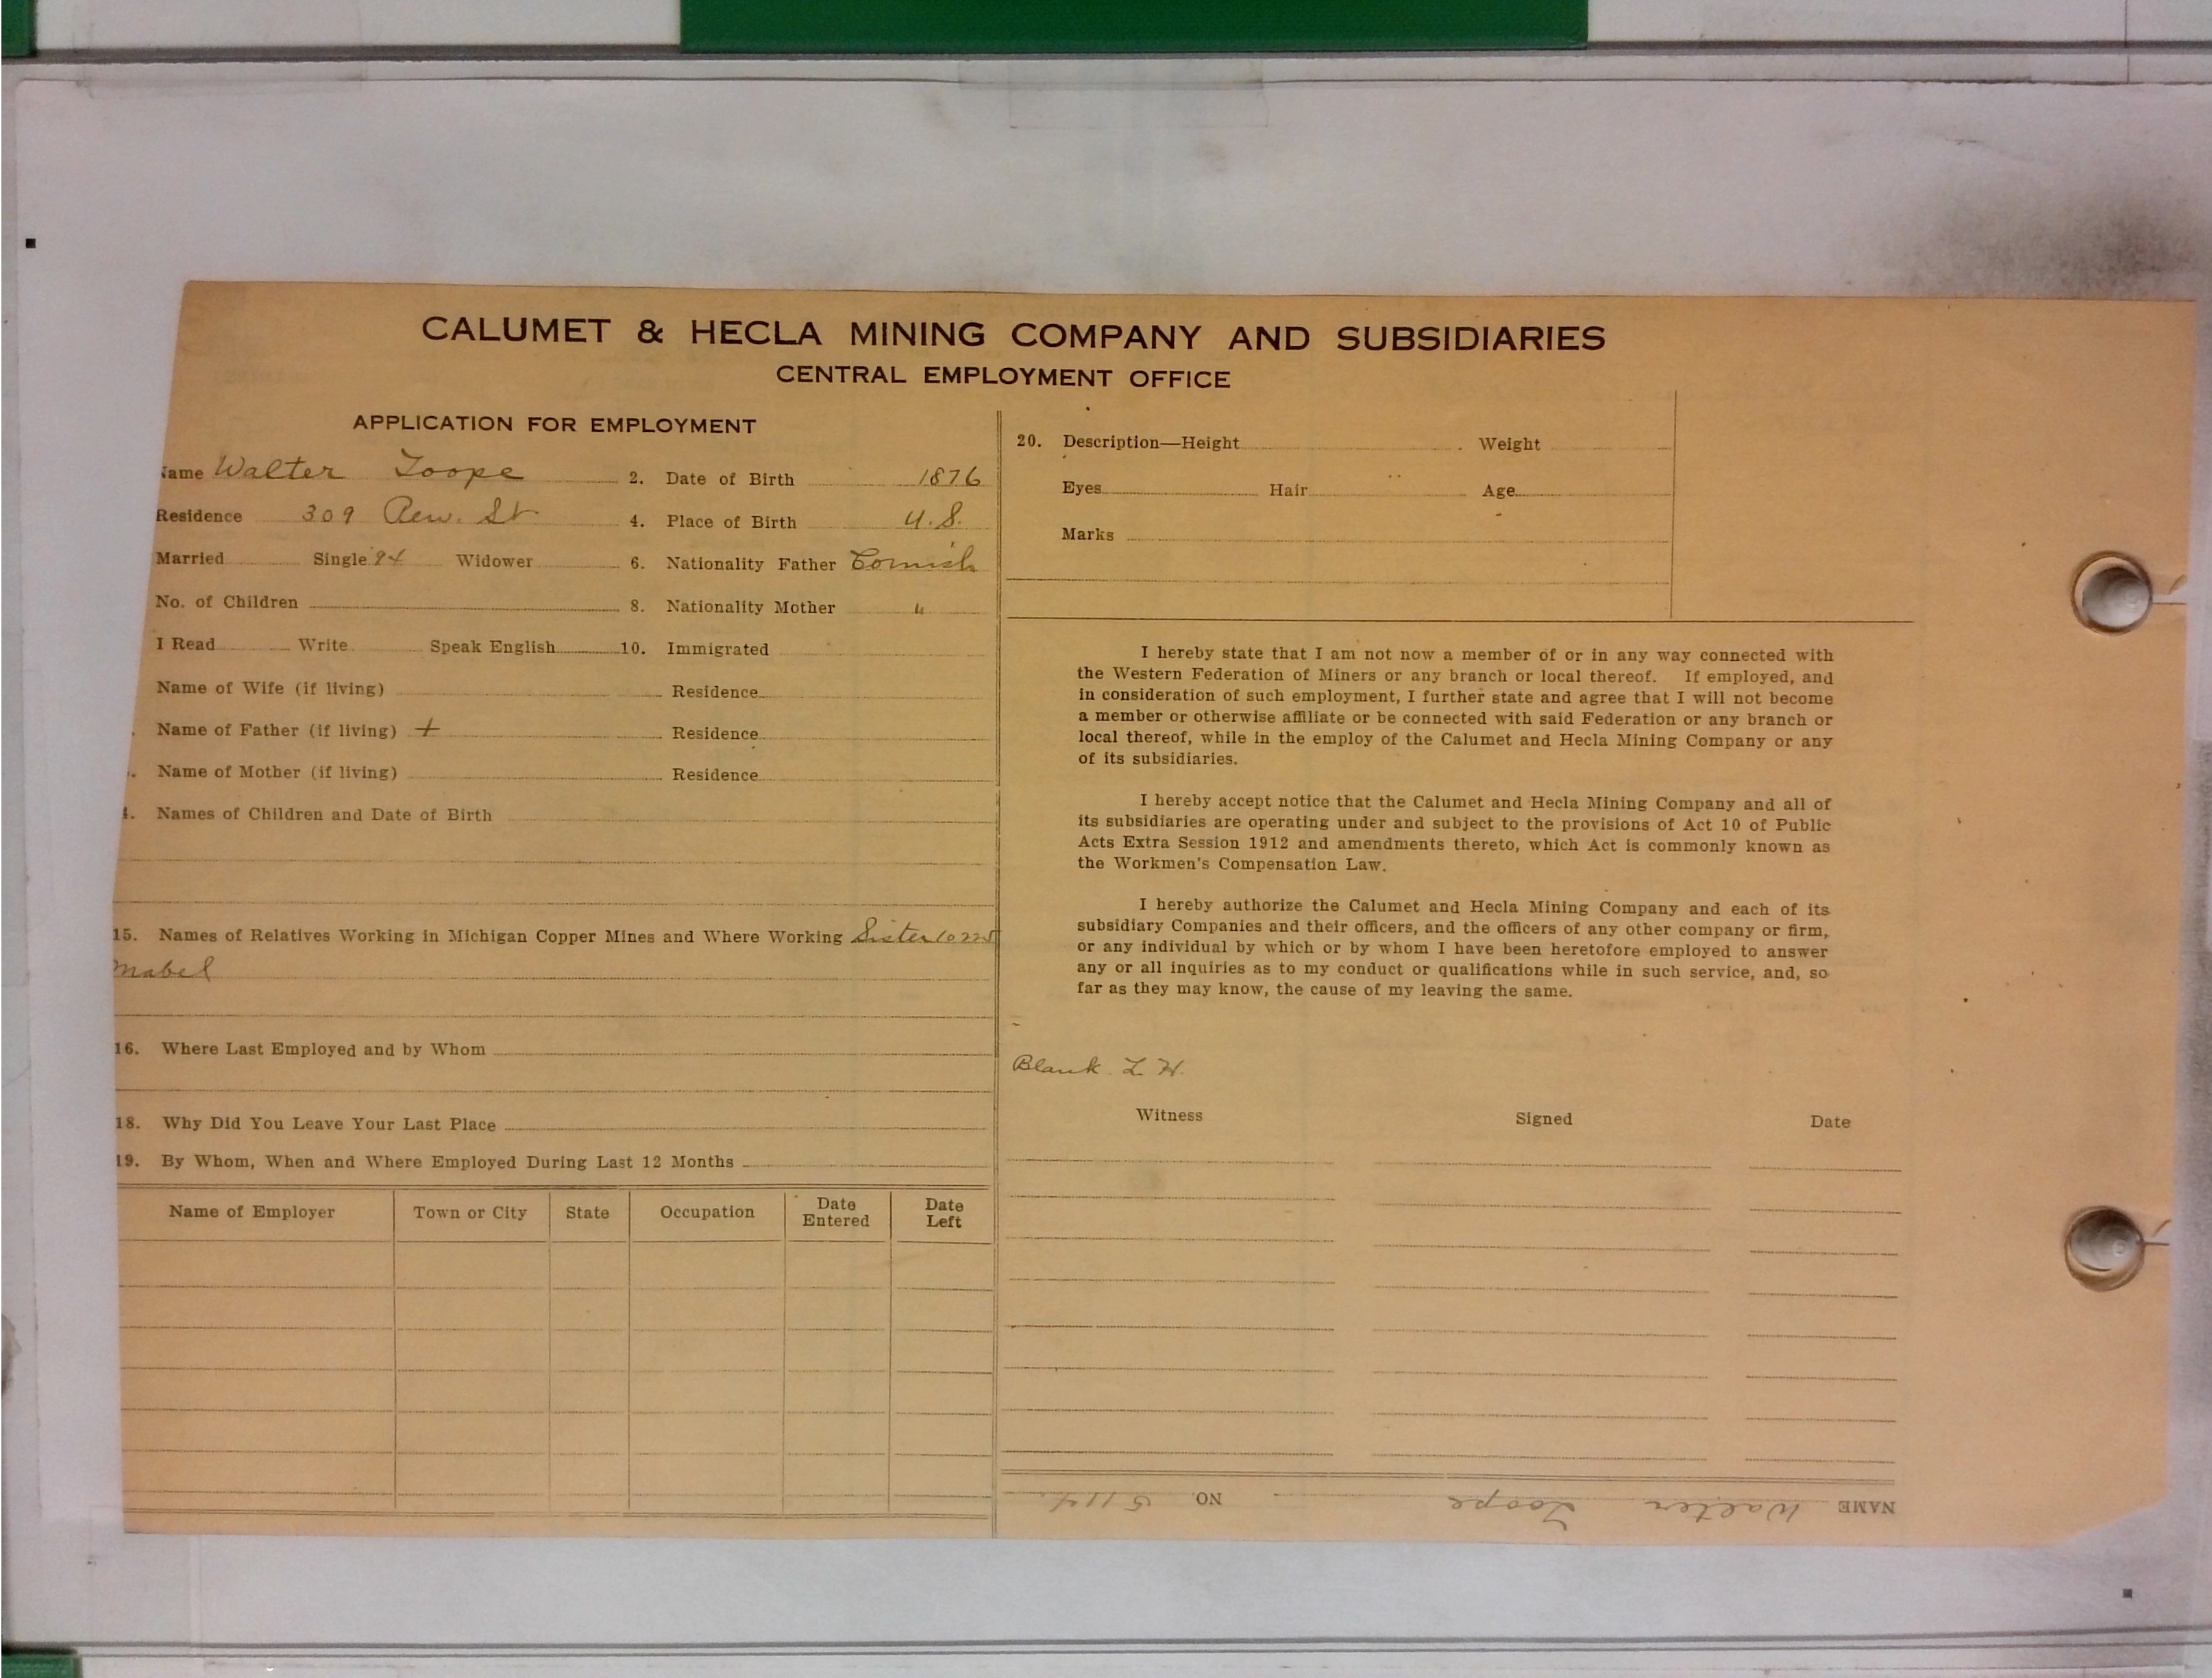 CALUMET & HECLA MINING COMPANY AND SUBSIDIARIES
CENTRAL EMPLOYMENT OFFICE
APPLICATION FOR EMPLOYMENT
Name Walter Toope 2. Date of Birth 1876
Residence 309 St 4. Place of Birth U.S.
Married Single Widower 6. Nationality Father Cornish
No. of Children 8. Nationality Mother "
I Read Write Speak English 10. Immigrated
Name of Wife (if living) Residence
Name of Father (if living) + Residence
Name of Mother (if living) Residence
Names of Children and Date of Birth
15. Names of Relatives Working in Michigan Copper Mines and Where Working Sister
Mabel
16. Where Last Employed and by Whom
18. Why Did You Leave Your Last Place
19. By Whom, When and Where Employed During Last 12 Months
Name of Employer Town or City State Occupation Date Entered Date Left
20. Description—Height Weight
Eyes Hair Age
Marks
I hereby state that I am not now a member of or in any way connected with
the Western Federation of Miners or any branch or local thereof. If employed, and
in consideration of such employment, I further state and agree that I will not become
a member or otherwise affiliate or be connected with said Federation or any branch or
local thereof, while in the employ of the Calumet and Hecla Mining Company or any
of its subsidiaries.
I hereby accept notice that the Calumet and Hecla Mining Company and all of
its subsidiaries are operating under and subject to the provisions of Act 10 of Public
Acts Extra Session 1912 and amendments thereto, which Act is commonly known as
the Workmen's Compensation Law.
I hereby authorize the Calumet and Hecla Mining Company and each of its
subsidiary Companies and their officers, and the officers of any other company or firm,
or any individual by which or by whom I have been heretofore employed to answer
any or all inquiries as to my conduct or qualifications while in such service, and, so
far as they may know, the cause of my leaving the same.
Blank
Witness Signed Date
NAME Walter Toope NO. 5114